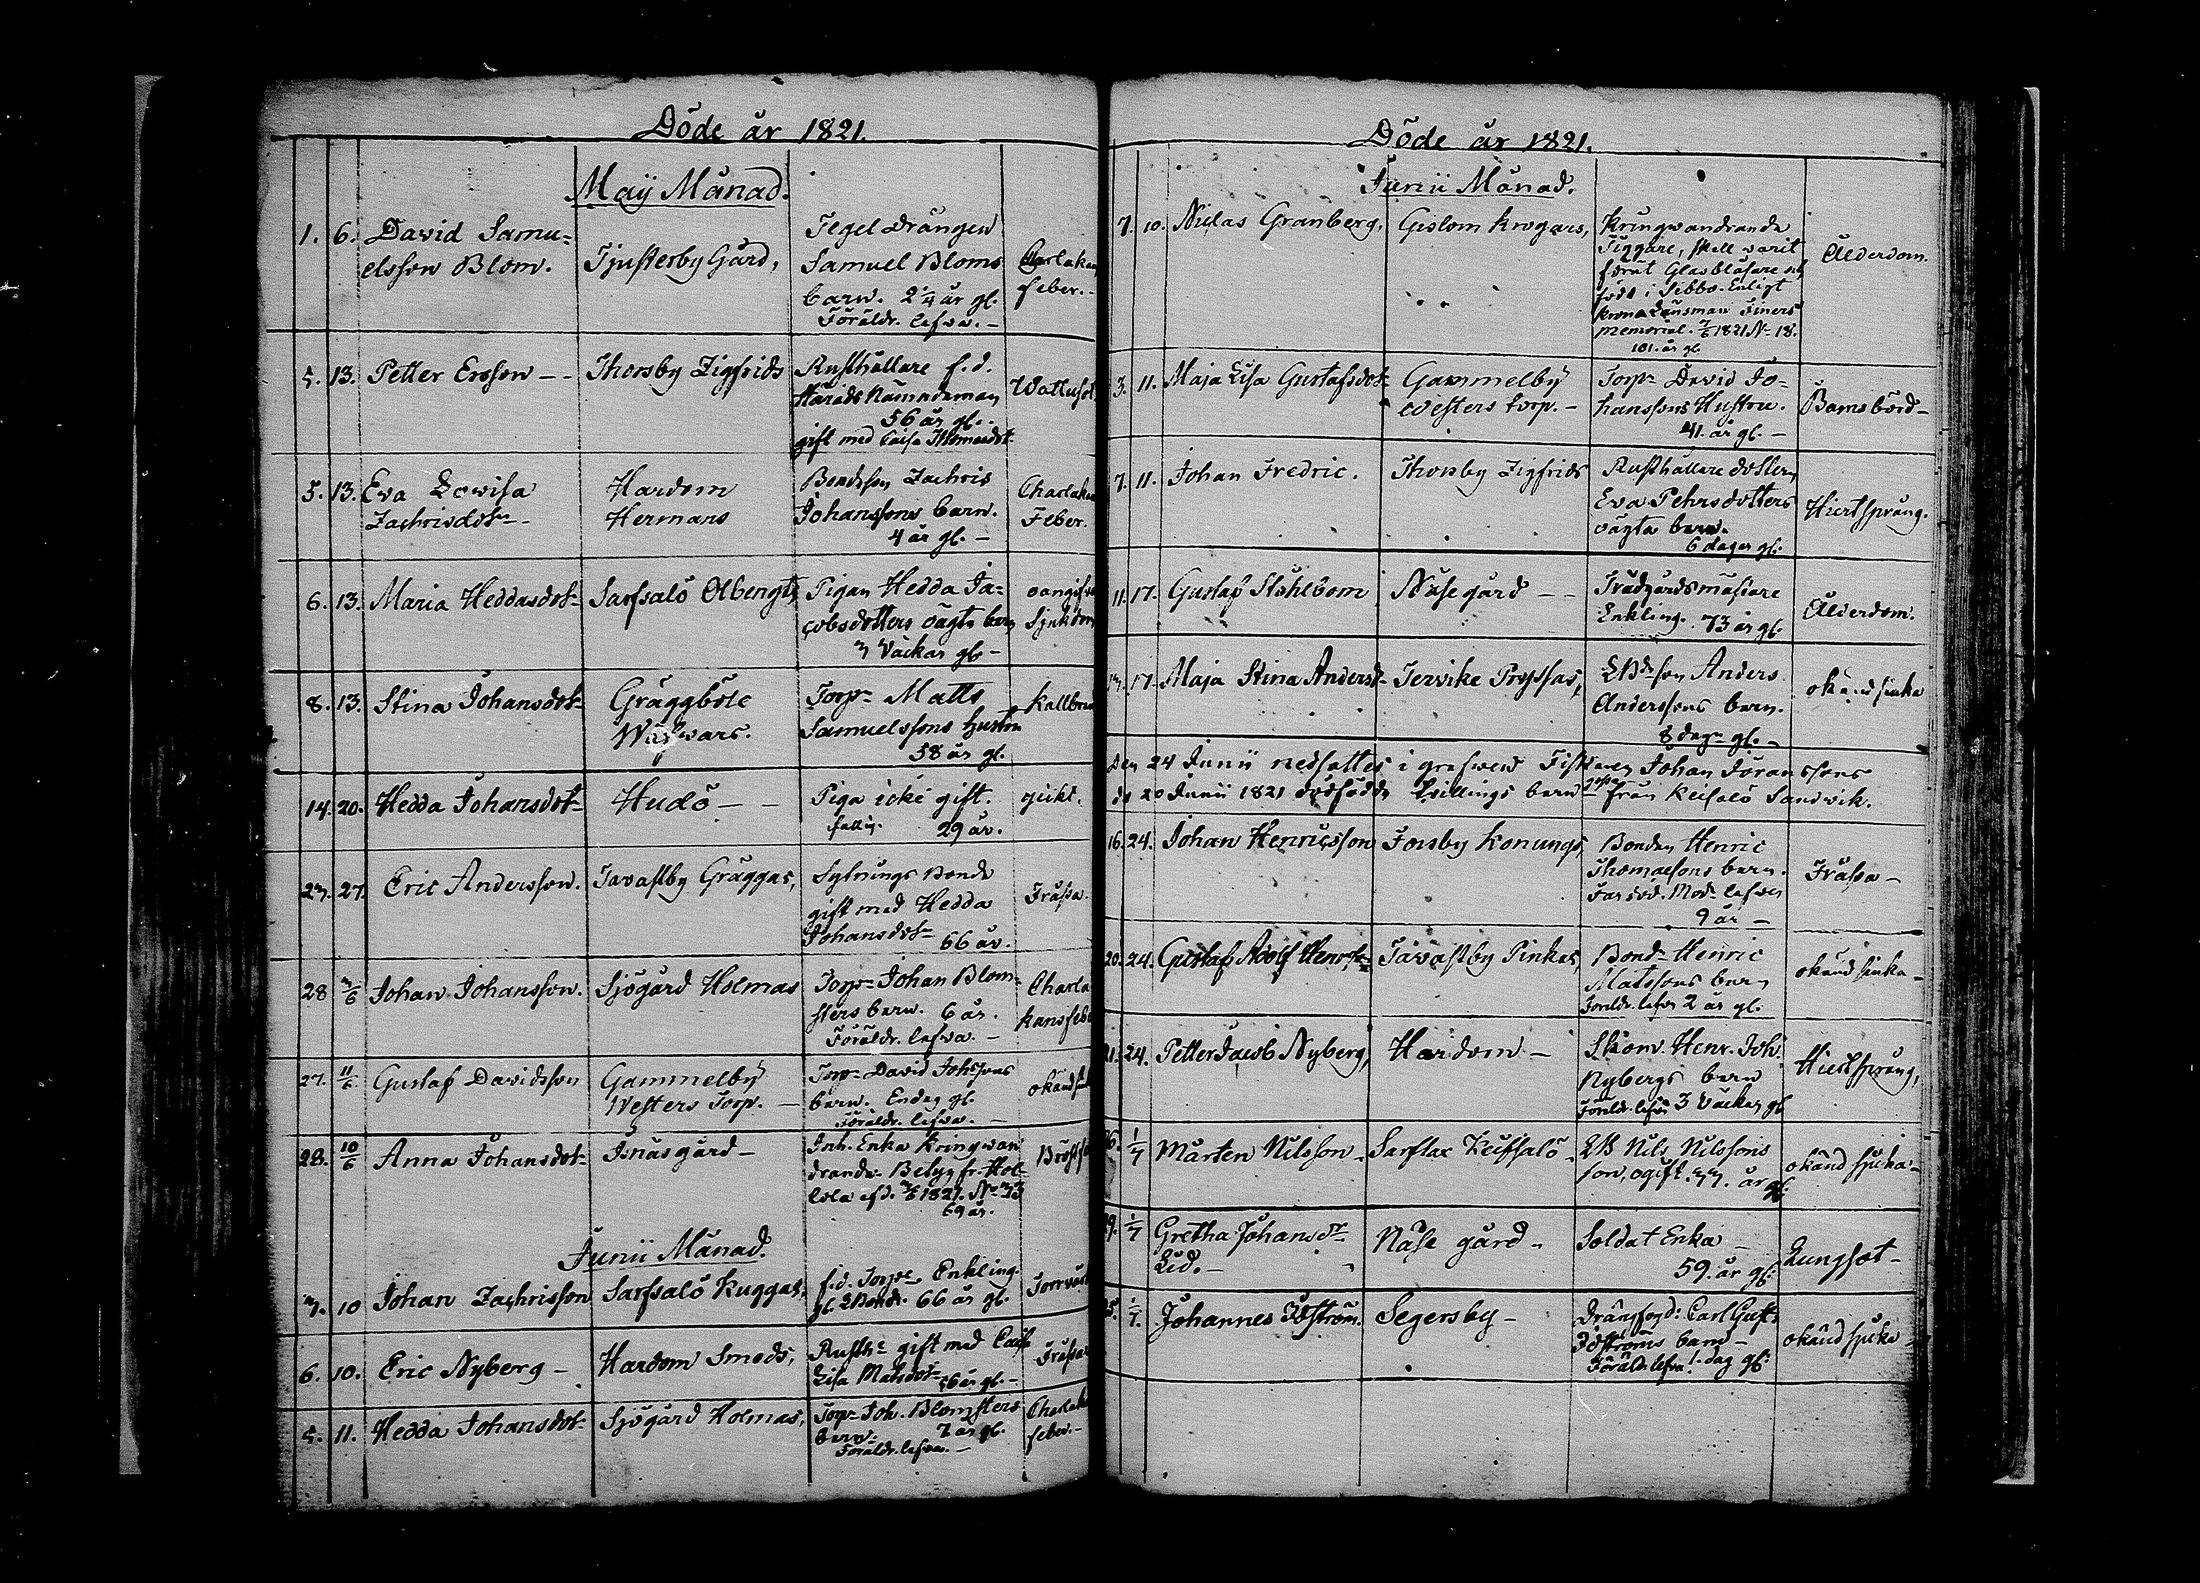 Döde år 1821.
Maij Månad.
1. 6. David Samu-
elsson Blom. Tjusterby Gård,
Tegel Drängen
Samuel Bloms
barn. 2 1/4 år gl.
Föräldr. lefva. –
Charlakans
feber. –
5. 13. Petter Ersson – – Thorsby Zigfrids
Rusthållare f.d.
Härads Nämndeman
56 år gl.
gift med Caisa Thomasdotr
Wattusot
5. 13. Eva Lovisa
Zachrisdotr –
Hardom
Hermans
Bondeson Zachris
Johanssons barn.
4 år gl. –
Charlakans
Feber.
6. 13. Maria Heddasdotr Sarfsalö Olbengts
Pigan Hedda Ja-
cobsdotters oägta barn
3 Väckar gl –
oangifven
Sjukdom
8. 13. Stina Johansdotr
Gräggböle
Torpr Matts
Samuelssons hustru
58 år gl.
Kallbrand
14. 20. Hedda Johansdotr Hudö – –
Piga icke gift.
fattig. 29 år.
gickt.
23. 27. Eric Andersson. Tavastby Gräggas,
Sytnings Bonde
gift med Hedda
Johansdotr 66 år.
Tråssa.
28 3/6 Johan Johansson. Sjögård Holmas
Torpr Johan Blom-
sters barn. 6 år.
Föräldr. lefva. –
Charla
kansfeber
27. 11/6 Gustaf Davidsson
Gammelby
Westers Torp. –
Torpr David Johssons
barn. Endag gl.
Föräldr. lefva. –
okänd
28. 10/6 Anna Johansdotr Isnäsgård –
Inh. Enka kringwan
drande. Betyg fr. Hol-
lola af d. 3/6 1821. No 33
69 år.
Bröstsot
Junii Månad.
3. 10 Johan Zachrisson Sarfsalö Kuggas,
f.d. Torpr Enkling.
66 år gl.
Torrvärk
6. 10. Eric Nyberg – Hardom Smeds,
Rusthr gift med Caisa
Lisa Matsdotr 56 år gl. –
Tråssa
5. 11. Hedda Johansdotr Sjögård Holmas,
Torpr Joh. Blomsters
barn. 2 år gl.
Föräldr. lefva. –
Charlakans
feber. –
Döde år 1821.
Junii Månad.
7. 10. Niclas Granberg, Gislom Krogars,
Kringwandrande
Tiggare, skall varit
förut Glasblåsare och
född i Sibbo. Enligt
Krono Länsman Finers
memorial. 7/6 1821. No 18.
101. år gl.
Ålderdom.
3. 11. Maja Lisa Gustafsdotr
Gammelby
Westers torp. –
Torpr David Jo-
hanssons Hustru.
41. år gl. –
Barnsbörd –
7. 11. Johan Fredric. Thorsby Zigfrids
Rusthållare dottern
Eva Pehrsdotters
oägta barn.
6 dagar gl.
Hiertsprång.
11. 17. Gustaf Ståhlbom Näsegård – –
Trädgårdsmästare
Enkling. 73 år gl.
Ålderdom.
13. 17. Maja Stina Andersdr Tervike
LBdeson Anders
Anderssons barn.
8 dagr gl. –
okänd siuka
Den 24 Junii nedsattes i grafwen Fiskaren Johan Göranssons
de 20 Junii 1821 dödfödda tvillings barn från Keisalö Sandvik.
16. 24. Johan Henricsson Forsby Konungs,
Bonden Henric
Thomassons barn.
Far död. Modr lefver
9 år –
Tråssa –
20. 24. Gustaf Adolf Henrssn Tavastby Pinkas,
Bondr Henric
Matssons barn
Föräldr. lefva 2 år gl.
okänd siuka –
21. 24. Petter Jacob Nyberg, Hardom –
Skom. Henr. Joh.
Nybergs barn
Föräldr. lefva 3 Väckar gl
Hiertsprång,
26. 1/7 Mårten Nilsson – Sarflax Keiffsalö –
LB Nils Nilssons
son, ogift. 33. år gl:
okänd sjuka –
29. 1/7 Gretha Johansdr
Lid. –
Näse gård –
Soldat Enka –
59. år gl:
Lungsot –
25. 1/7. Johannes Idström. Segersby –
Drängfogd: Carl Gust:
Idströms barn –
Föräldr. lefva 1. dag gl:
okänd sjuka –